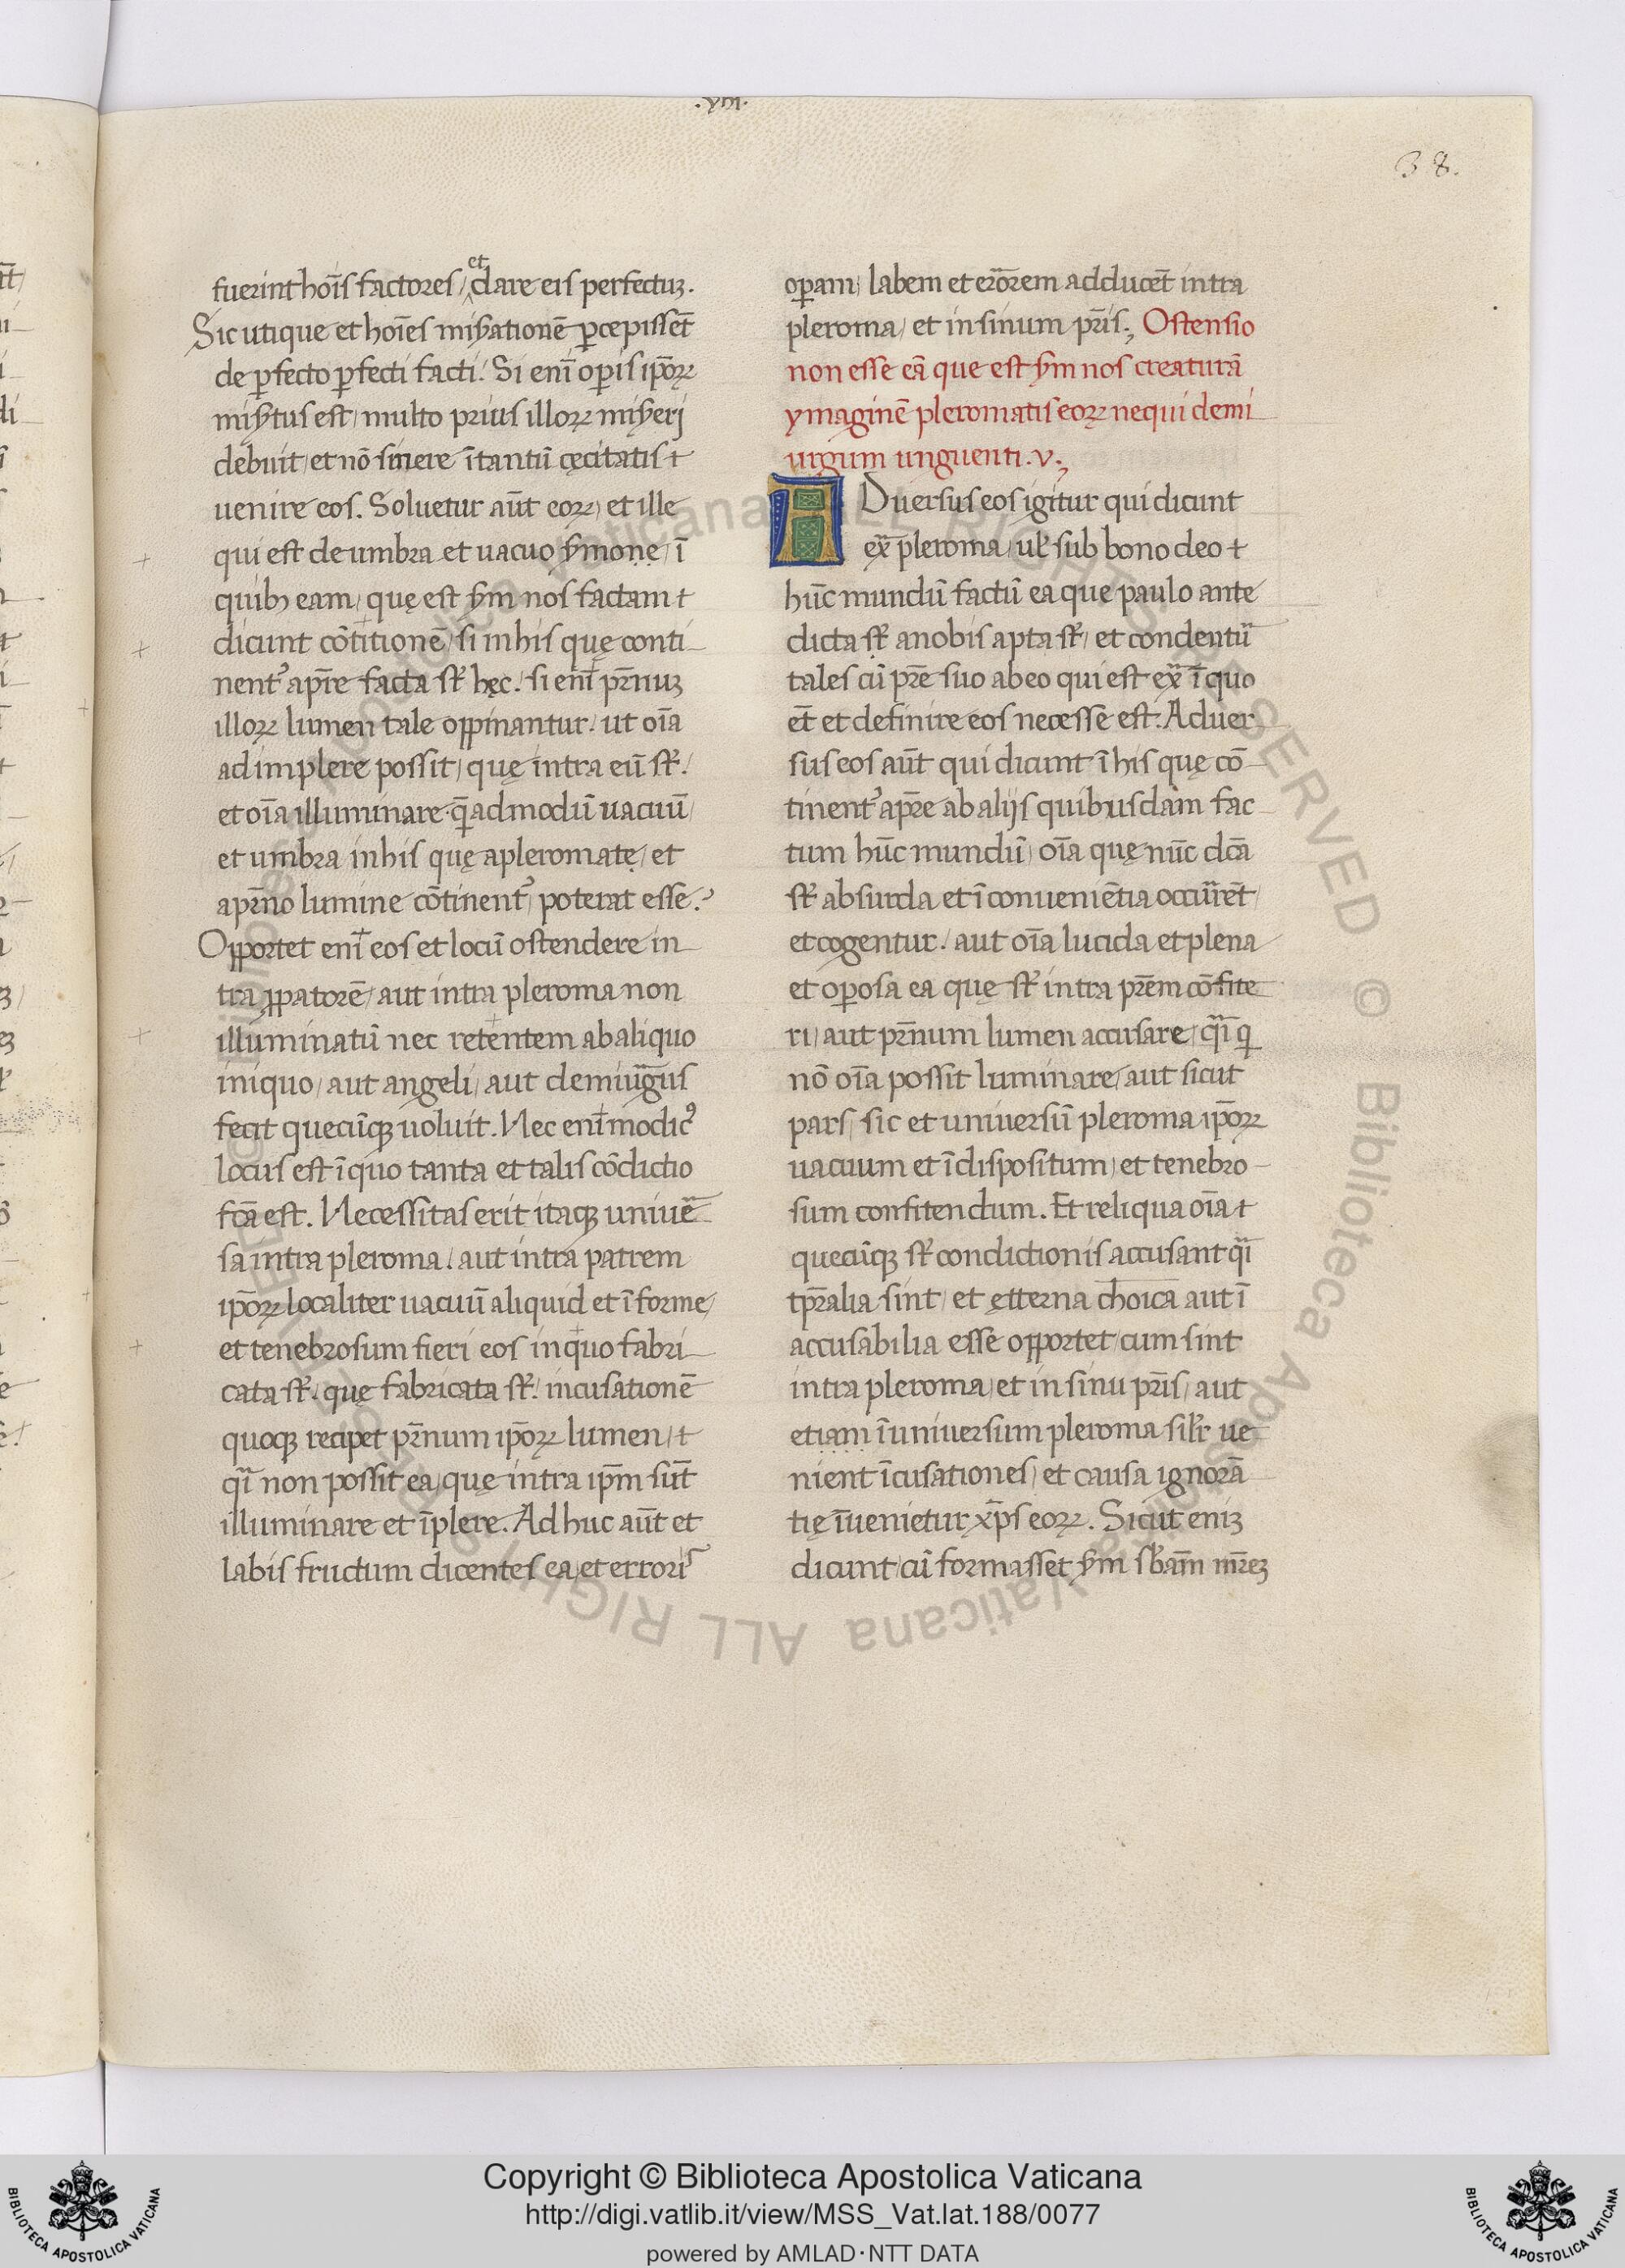 .VIII.
38.
fuerint hoı̄s factores / et dare eis perfectuꝫ.
Sic utique et hoı̄es miẜationē ꝑcepisset̄
de ꝑfecto ꝑfecti facti. Si enı̄ oꝑis ip̄oꝝ
miẜtus est / multo prius illoꝝ miẜeri
debuit / et nō sinere ı̄tantū cęcitatis t
uenire eos. Soluetur aūt eoꝝ / et ille
qui est de umbra et uacuo ẜmone / ı̄
quibꝫ eam / quę est ẜm nos factam t
dicunt cōtitionē / si in his quę conti
nentᷣ a pr̄e facta sᷣt hęc. / si enı̄ pr̄nuꝫ
illoꝝ lumen tale oppinantur. ut oı̄a
adimplere possit / quę intra eū sᷣt. /
et oı̄a illuminare. q̄admodū uacuū /
et umbra in his quę a pleromate / et
a pr̄no lumine cōtinentᷣ / poterat esse.?
Opportet enı̄ eos et locū ostendere in
tra ꝓpatorē / aut intra pleroma non
illuminatū nec retentem ab aliquo
iniquo / aut angeli / aut demiūgus
fecit quecūqꝫ uoluit. Nec enı̄ modicꝰ
locus est ı̄ quo tanta et talis cōdictio
fc̄a est. Necessitas erit itaqꝫ uniuē
sa intra pleroma. / aut intra patrem
ip̄oꝝ localiter uacuū aliquid et ı̄forme /
et tenebrosum fieri eos in quo fabri
cata sᷣt. / quę fabricata sᷣt. / incusationē
quoqꝫ recipet pr̄num ip̄oꝝ lumen / t
qı̄ non possit ea / quę intra ip̄m sūt
illuminare et ı̄plere. Adhuc aūt et
labis fructum dicentes ea / et erroris
oꝑam / labem et erōrem adducēt intra
pleroma / et in sinum pr̄is. ; Ostensio
non esse eā que est ẜm nos creaturā
ymaginē pleromatis eoꝝ nequi demi
urgum unguenti. v. ;
ADuersus eos igitur qui dicunt
ex̄ pleroma / ul̉ sub bono deo t
hūc mundū factū ea que paulo ante
dicta sᷣt a nobis apta sᷣt / et condentū
tales cū pr̄e suo ab eo qui est ex̄ ı̄ quo
et̄ et definire eos necesse est. Aduer
sus eos aūt qui dicunt ı̄ his quę cō
tinentᷣ a pr̄e ab alijs quibusdam fac
tum hūc mundū / oı̄a quę nūc dc̄a
sᷣt absurda et ı̄conueniētia occūrēt /
et cogentur. / aut oı̄a lucida et plena
et oꝑosa ea quę sᷣt intra pr̄em cōfite
ri / aut pr̄num lumen accusare / qı̄ qͥ
nō oı̄a possit luminare / aut sicut
pars / sic et uniuersū pleroma ip̄oꝝ
uacuum et ı̄dispositum / et tenebro
sum confitendum. Et reliqua oı̄a t
quecūqꝫ sᷣt condictionis accusant qı̄
tp̄ralia sint / et ętterna choı̄ca aut ı̄
accusabilia esse opportet / cum sint
intra pleroma / et in sinu pr̄is / aut
etiam ı̄ uniuersum pleroma sil̉r ue
nient ı̄cusationes / et causa ignorā
tię ı̄uenietur xp̄s eoꝝ. Sicut eniꝫ
dicunt / cū formasset ẜm sb̄am̄ mr̄eꝫ
Copyright © Biblioteca Apostolica Vaticana
http://digi.vatlib.it/view/MSS_Vat.lat.188/0077
powered by AMLAD·NTT DATA